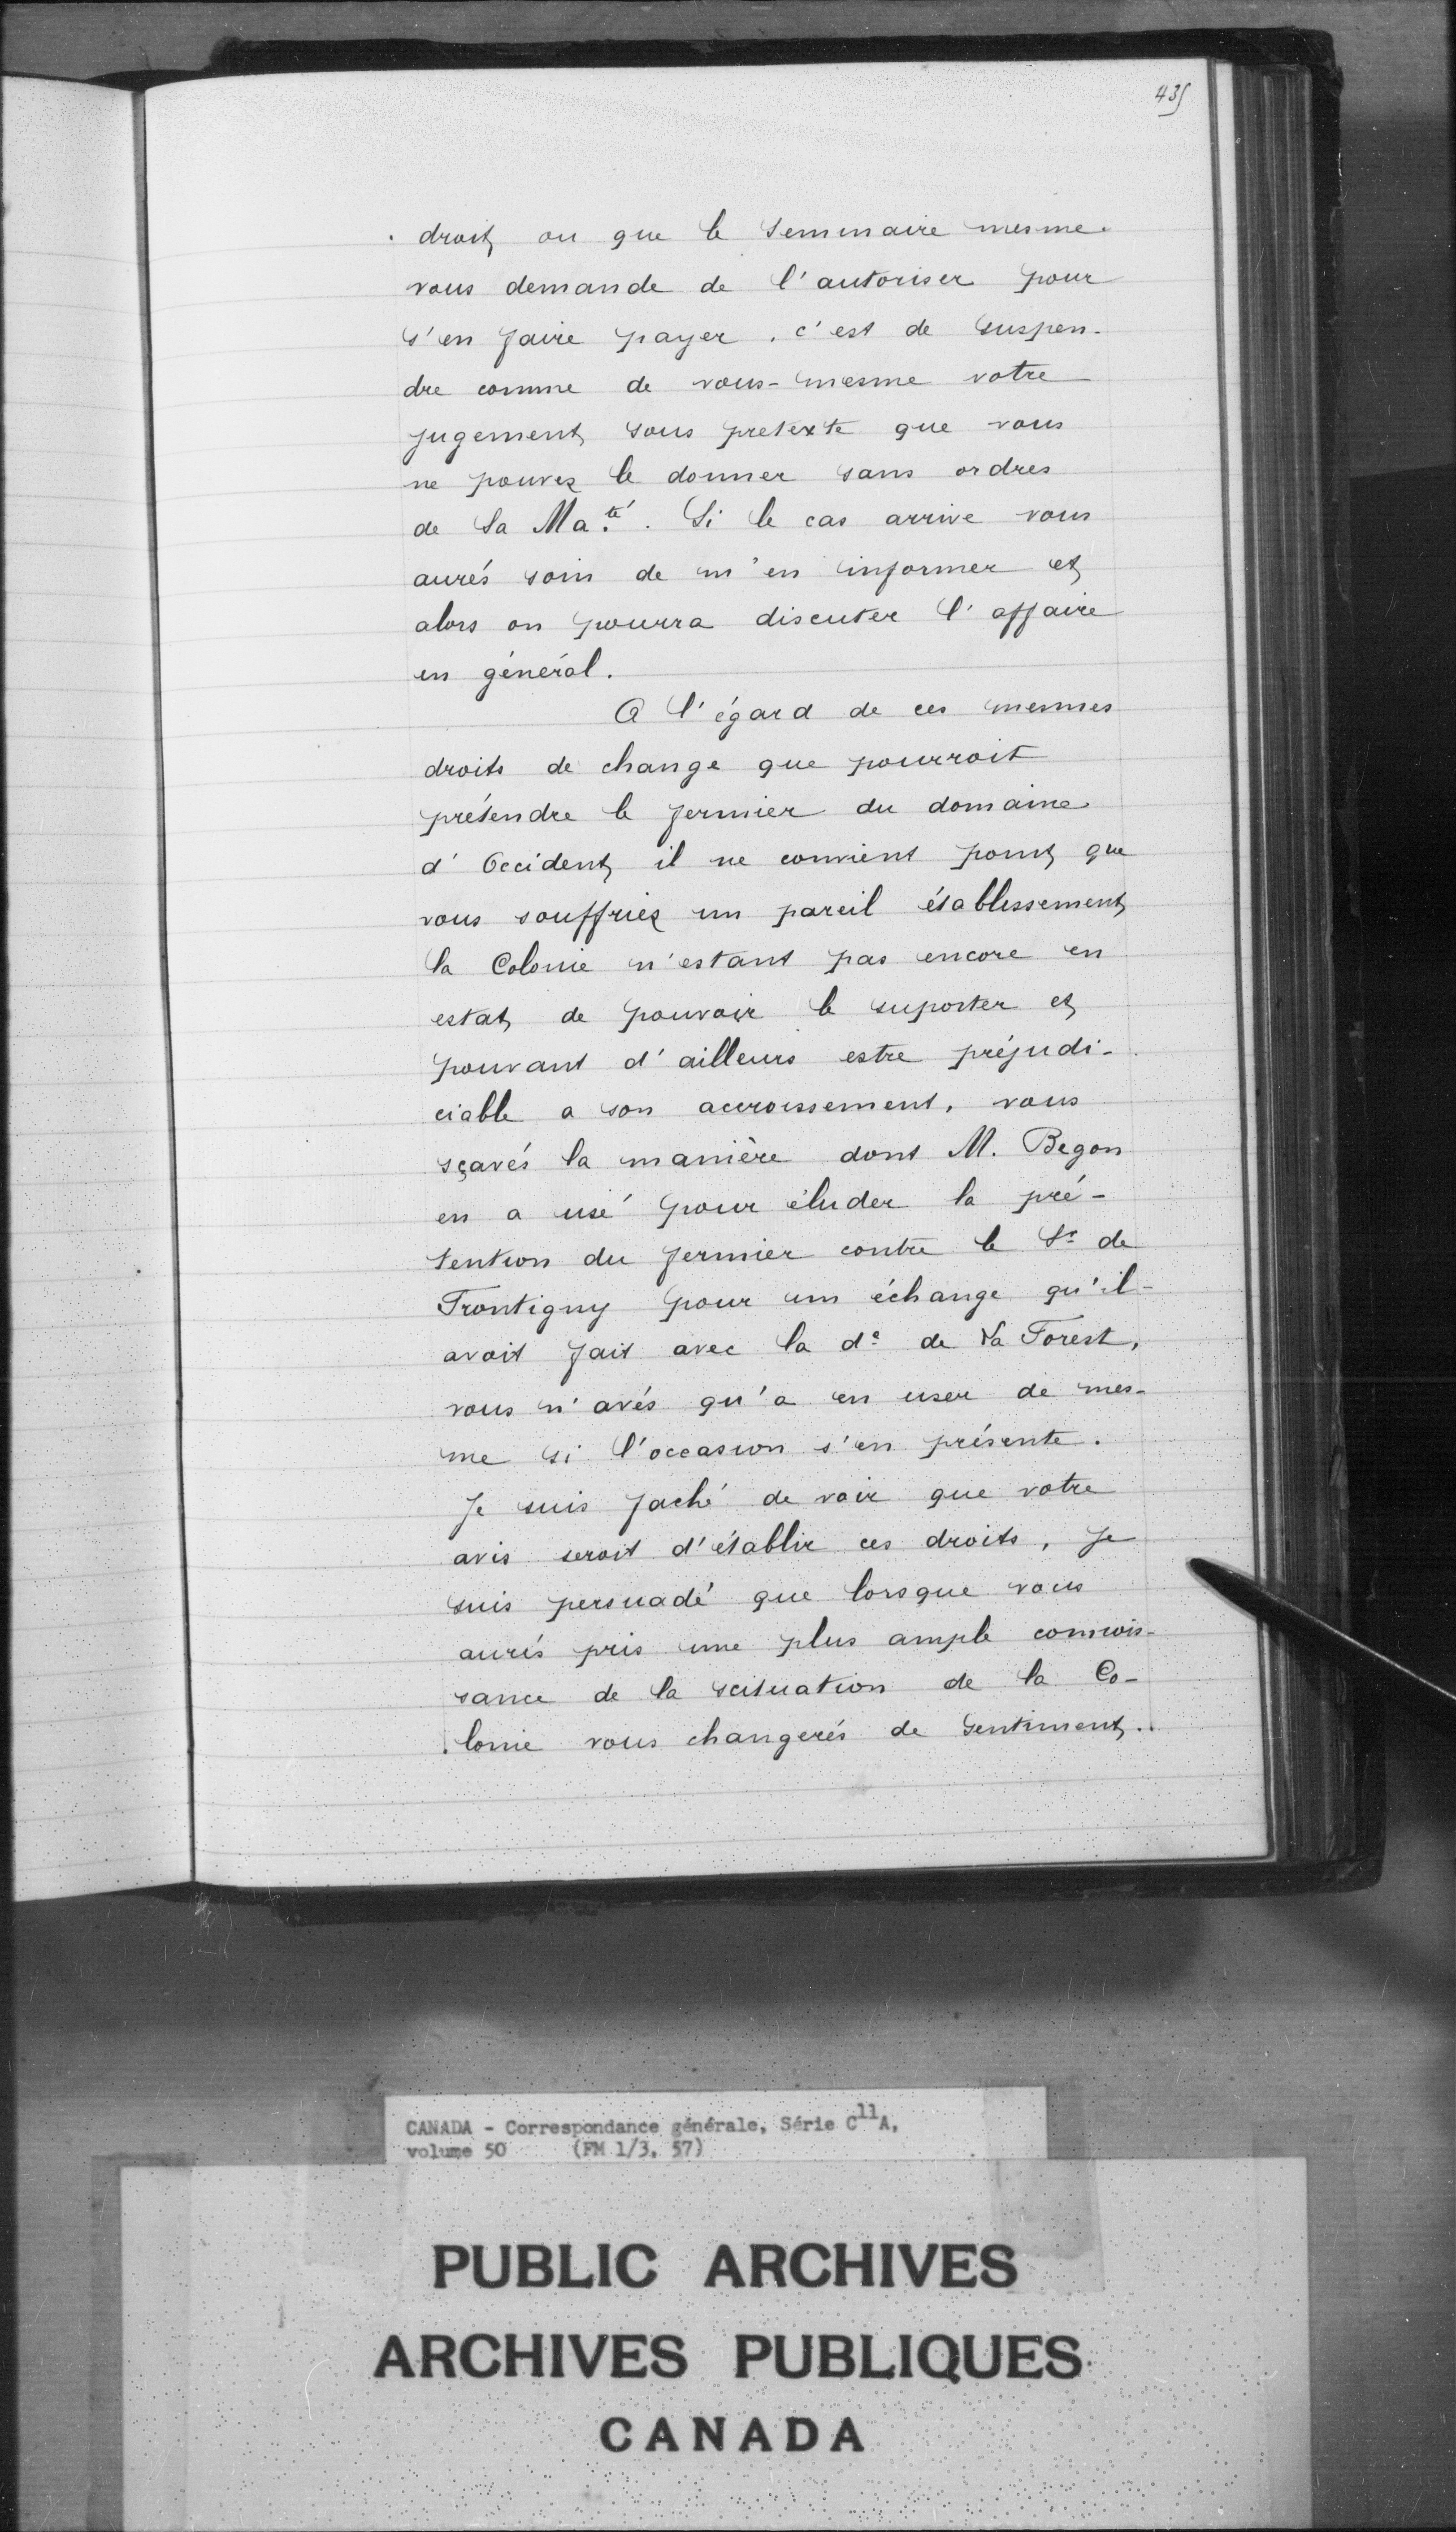 435
droit ou que le Seminaire mesme
vous demande de l'autoriser pour
s'en faire payer, c'est de suspen-
dre comme de vous-mesme votre
jugement sous pretexte que vous
ne pouvez le donner sans ordres
de Sa Ma.té. Si le cas arrive vous
aurés soin de m'en informer et
alors on pourra discuter l'affaire
en général.
A l'égard de ces mesmes
droits de change que pourroit
prétendre le fermier du domaine
d'Occident il ne convient point que
vous souffriez un pareil établissement
la Colonie n'estant pas encore en
estat de pouvoir le suporter et
pouvant d'ailleurs estre préjudi-
ciable a son accroissement, vous
sçavés la manière dont M. Begon
en a usé pour éluder la pré-
tention du fermier contre le Sr de
Frontigny pour un échange qu'il
avoit fait avec la de de La Forest,
vous n'avés qu'a en user de mes-
me si l'occasion s'en présente.
Je suis faché de voir que votre
avis seroit d'établir ces droits, je
suis persuadé que lorsque vous
aurés pris une plus ample connois-
sance de la scituation de la Co-
lonie vous changerés de sentiment.
CANADA - Correspondance générale, Série C11A,
volume 50 (FM 1/3, 57)
PUBLIC ARCHIVES
ARCHIVES PUBLIQUES
CANADA